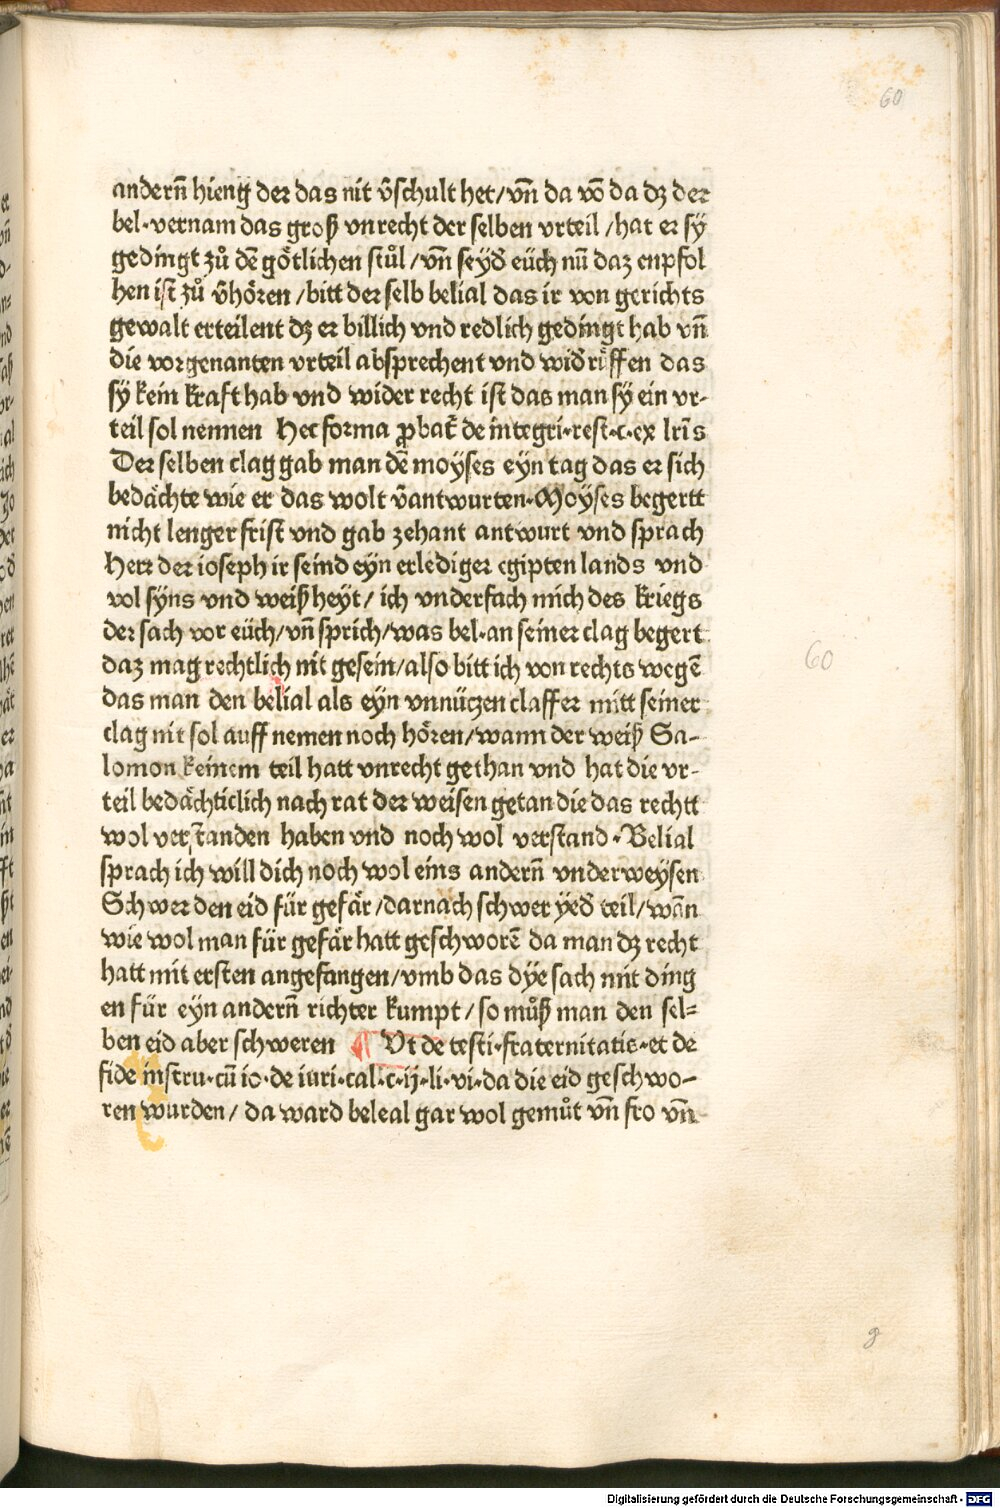 60
andern̄ hieng der das nit v̄schult het/vn̄ da vō da dz der
bel·vernam das groß vnrecht der selben vrteil/hat er sy
gedingt zů dē gȫtlichen stůl/vn̄ seyd̄ eüch nū daz enpfol
hen ist zů v̄hören/bitt der selb belial das ir von gerichts
gewalt erteilent dz er billich vnd redlich gedingt hab vn̄
die vorgenanten vrteil absprechent vnd wid̄rüffen das
sy kein kraft hab vnd wider recht ist das man sy ein vr-
teil sol nennen Hec forma ꝓbat̄ de integri·rest·c·ex lrīs
Der selben clag gab man dē moyses eyn tag das er sich
bedächte wie er das wolt v̄antwurten·Moyses begertt
nicht lenger frist vnd gab zehant antwurt vnd sprach
Herr der ioseph ir seind eyn erlediger egipten lands vnd
vol syns vnd weißheyt/ich vnderfach mich des kriegs
der sach vor eüch/vn̄ sprich/was bel·an seiner clag begert
daz mag rechtlich nit gesein/also bitt ich von rechts wegē
das man den belial als eyn vnnüczen claffer mitt seiner
clag nit sol auff nemen noch hören/wann der weiß Sa-
lomon keinem teil hatt vnrecht gethan vnd hat die vr-
teil bedächticlich nach rat der weisen getan die das rechtt
wol verstanden haben vnd noch wol verstand·Belial
sprach ich will dich noch wol eins andern̄ vnderweysen
Schwer den eid für gefär/darnach schwer yed̄ teil/wān
wie wol man für gefär hatt geschworē da man dz recht
hatt mit ersten angefangen/vmb das dye sach mit ding
en für eyn andern̄ richter kumpt/so můß man den sel-
ben eid aber schweren ¶ Vt de testi·fraternitatis·et de
fide instru·cū io·de iuri·cal·c·ij·li·vi·da die eid geschwo-
ren wurden/da ward beleal gar wol gemůt vn̄ fro vn̄
60
g
Digitalisierung gefördert durch die Deutsche Forschungsgemeinschaft - DFG